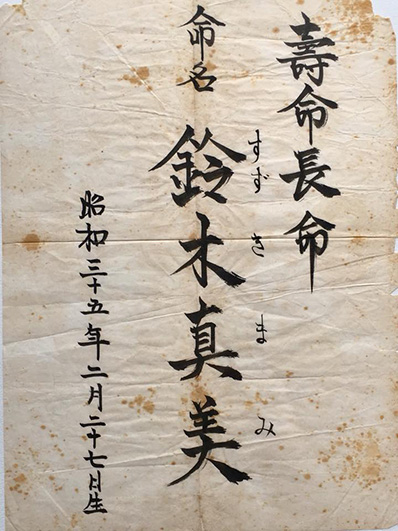 壽命長命
命名
鈴木真美
すずきまみ
昭和三十五年二月二十七日生